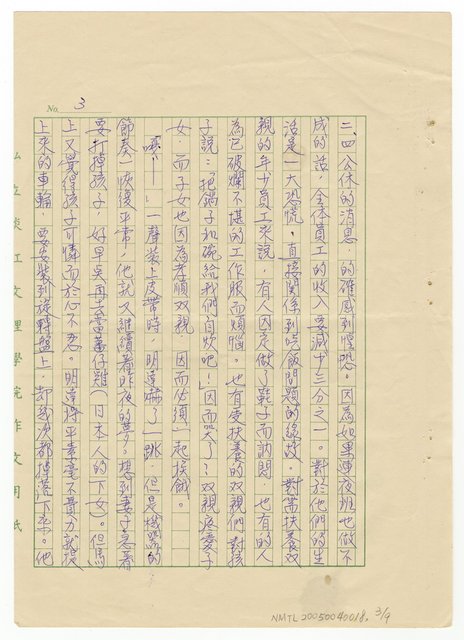 No. 3
二、四公休的消息，的確感到恐慌。因為如果連夜班也做不
成的話，全体員工的收入要減廿三分之一。對於他們的生
活是一大恐慌。直接關係到吃飯問題的緣故。對需扶養双
親的年少員工來說，有人因定做了鞋子而訥悶，也有的人
為已破爛不堪的工作服而煩惱。也有受扶養的双親們對孩
子說：「把鍋子和碗給我們自炊吧」，因而哭了？双親疼愛子
女，而子女也因為孝順双親，因而必須一起挨餓。
嘭——，一聲裝上皮帶時，明達嚇了一跳，但是機器的
節奏一恢復平常，他就又繼續着昨夜的夢。想到妻子急着
要打掉孩子，好早点再去當蕃仔雞（日本人的下女）。但馬
上又覺得孩子可憐而於心不忍。明達將平素毫不費力就提
上來的車輪，要安裝到旋轉盤上，却幾次都掉落下來。他
私立淡江文理學院作文用紙
NMTL20050040018, 3/9